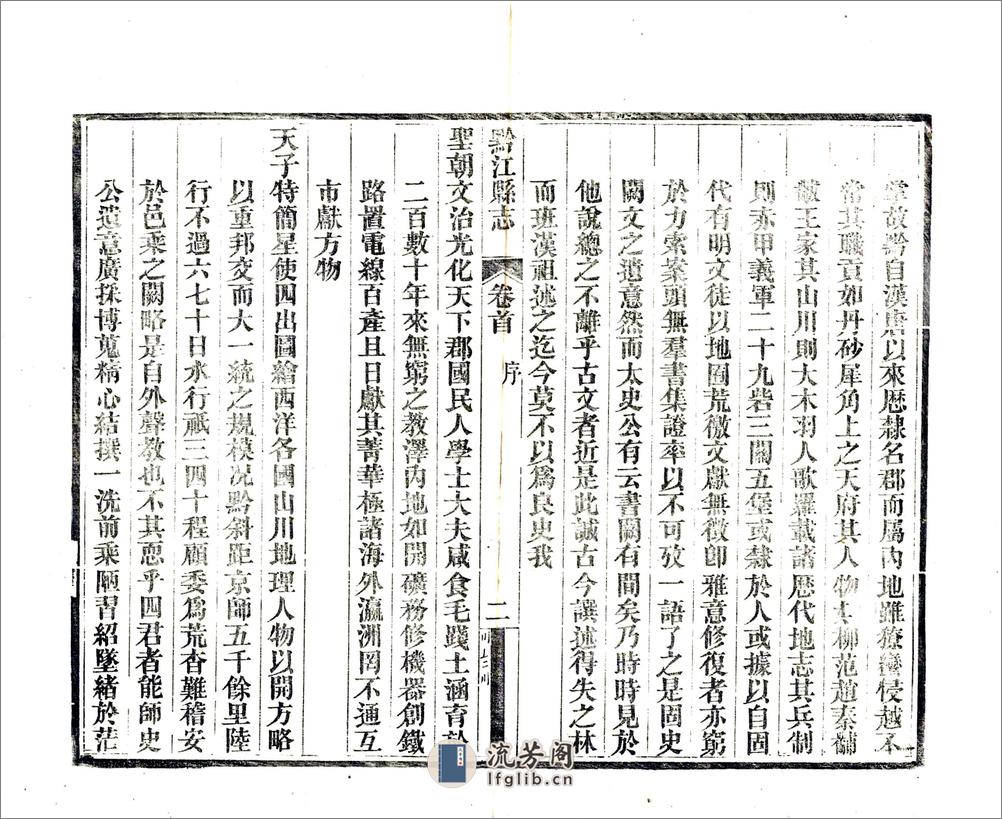 掌故黔自漢唐以來歷隸名郡而屬內地雖獠蠻侵越不
常其職貢如丹砂犀角上之天府其人物如柳范趙秦黼
黻王家其山川則大木羽人歌羅載諸歷代地志其兵制
則赤甲義軍二十九砦三關五堡或隸於人或據以自固
代有明文徒以地囿荒徼文獻無徵卽雅意修復者亦窮
於力索案頭無羣書集證率以不可攷一語了之是固史
闕文之遺意然而太史公有云書闕有間矣乃時時見於
他說總之不離乎古文者近是此誠古今譔述得失之林
而班漢祖述之迄今莫不以爲良史我
黔江縣志
卷首
序
二
聖朝文治光化天下郡國民人學士大夫咸食毛踐土涵育於
二百數十年來無窮之教澤內地如開礦務修機器創鐵
路置電線百產且日獻其菁華極諸海外瀛洲罔不通互
市獻方物
天子特簡星使四出圖繪西洋各國山川地理人物以開方略
以重邦交而大一統之規模況黔斜距京師五千餘里陸
行不過六七十日水行祇三四十程顧委爲荒杳難稽安
於邑乘之闕略是自外聲教也不其恧乎四君者能師史
公遺意廣採博蒐精心結撰一洗前乘陋習紹墜緒於茫
流芳阁
lfglib.cn